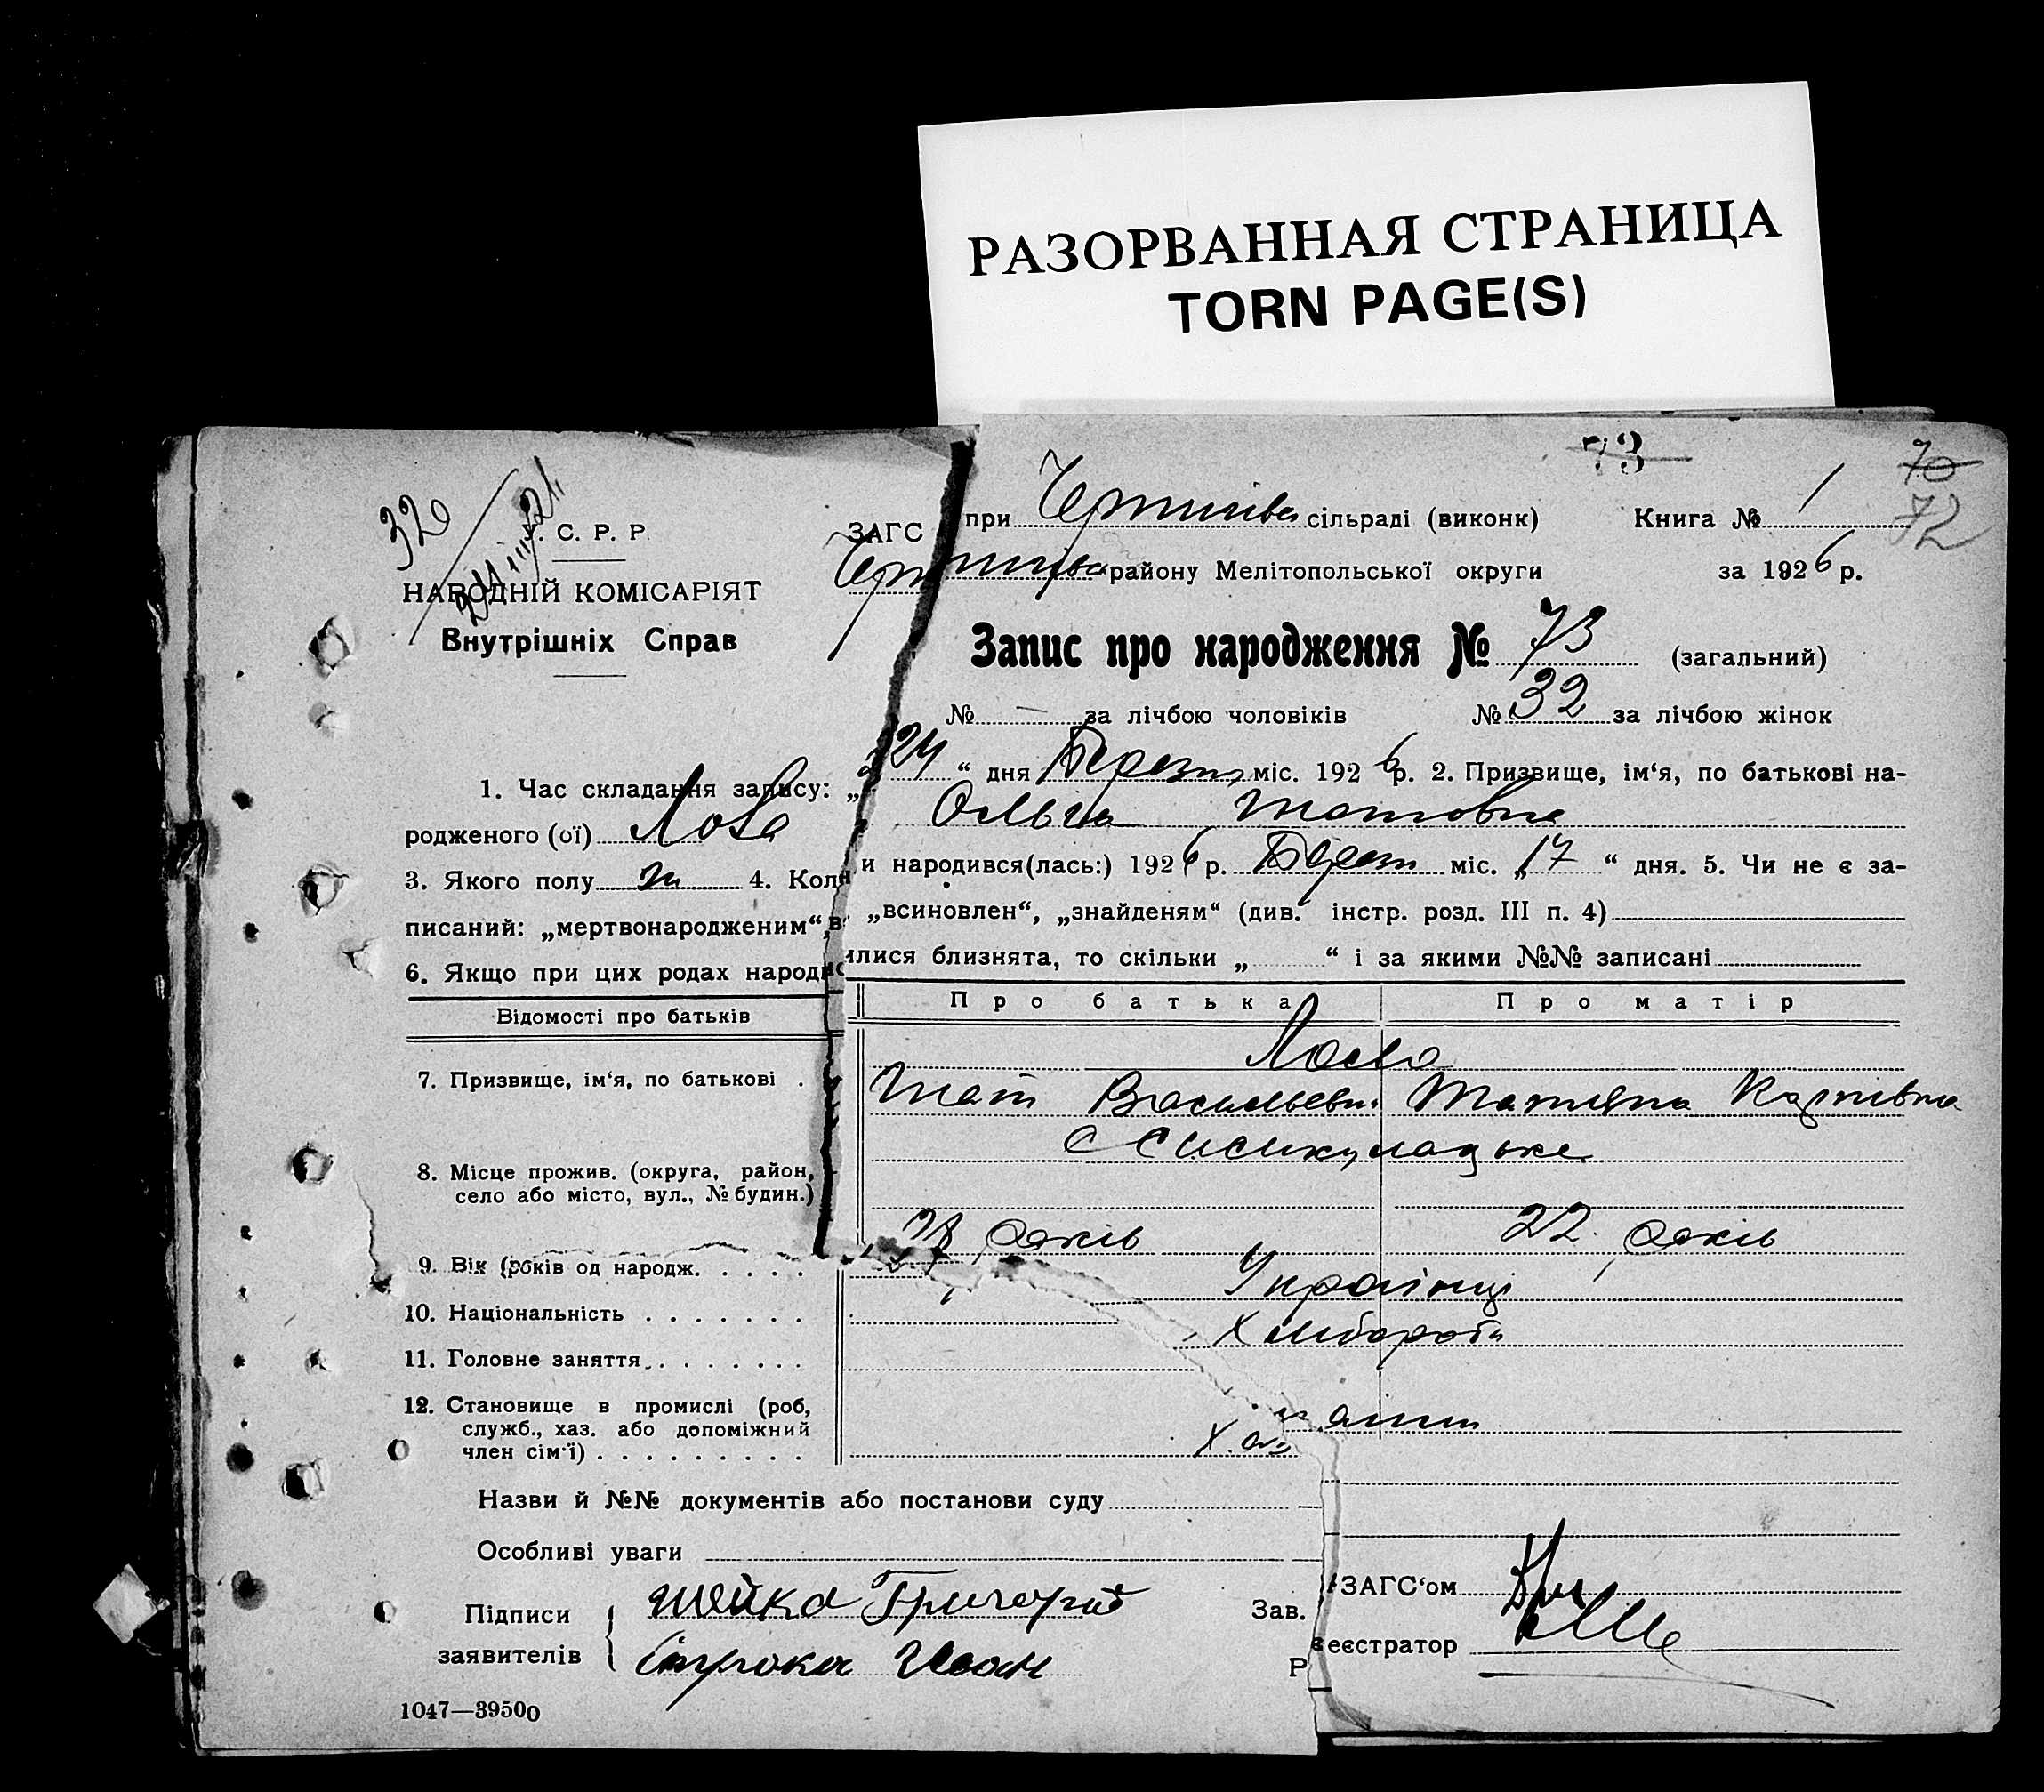 РАЗОРВАННАЯ СТРАНИЦА
TORN PAGE(S)
73
70
72
320
. С. Р. Р.
НАРОДНІЙ КОМІСАРІЯТ
Внутрішніх Справ
ЗАГС при сільраді (виконк) Книга № 1
району Мелітопольської округи за 1926 р.
Запис про народження № 73 (загальний)
№ — за лічбою чоловіків № 32 за лічбою жінок
1. Час складання запису: „24“ дня Березня міс. 1926 р. 2. Призвище, ім‘я, по батькові на-
родженого (ої) Ольга
3. Якого полу ж 4. Коли народився(лась:) 1926 р. Берез міс. „17“ дня. 5. Чи не є за-
писаний: „мертвонародженим“, „всиновлен“, „знайденям“ (див. інстр. розд. III п. 4)
6. Якщо при цих родах народилися близнята, то скільки „ “ і за якими №№ записані
Відомості про батьків Про батька Про матір
7. Призвище, ім‘я, по батькові . Васильевич Татяна Карпівна
8. Місце прожив. (округа, район, село або місто, вул., № будин.)
9. Вік (років од народж. . . . . років 22. років
10. Національність . . . . . . . Українці
11. Головне заняття . . . . . . . Хлібороби
12. Становище в промислі (роб, служб., хаз. або допоміжний член сім‘ї) . . . . . . . . .
Назви й №№ документів або постанови суду
Особливі уваги
Підписи заявителів Шейка Григорий
Иван
Зав. ЗАГС‘ом
Реєстратор
1047—39500